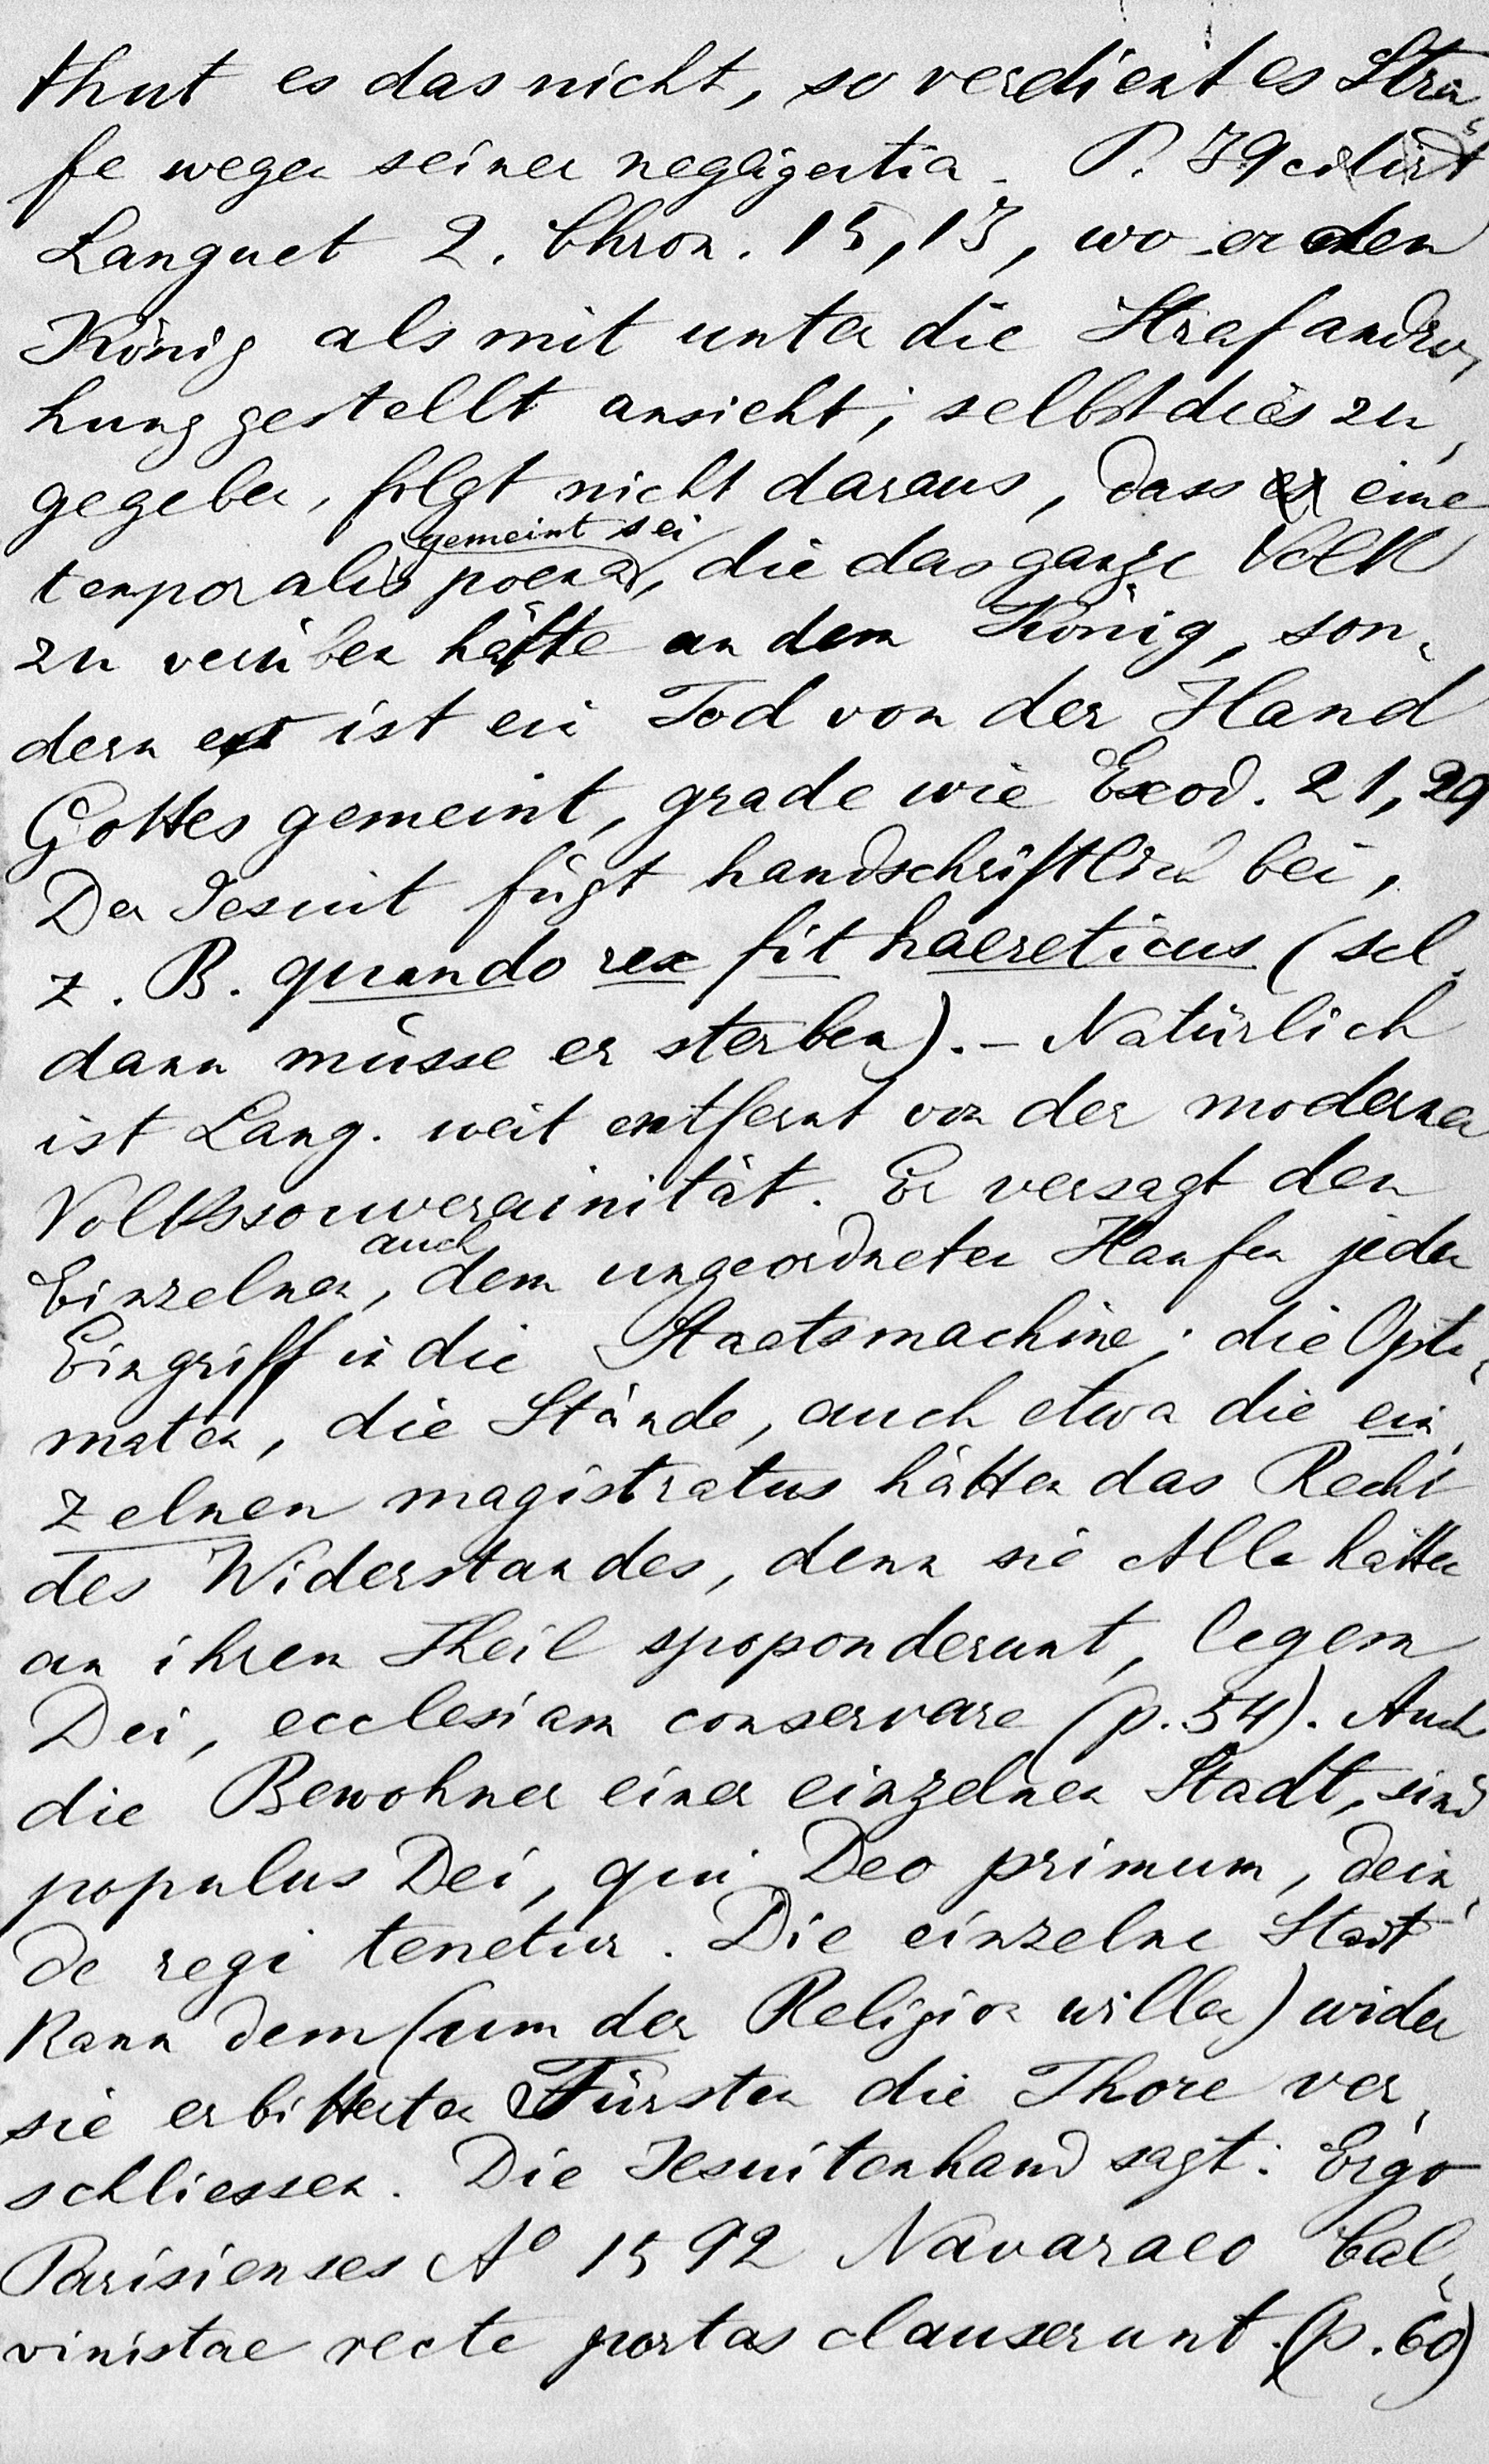 thut es das nicht, so verdient es Stra-
fe wegen seiner negligentia. P. 39 citirt
Languet 2. Chron. 15,13, wo er den
König als mit unter die Strafandro-
hung gestellt ansieht; selbst dies zu-
gegeben, folgt nicht daraus, dass eine
gemeint sei
temporalis poena, die das ganze Volk
zu verüben hätte an dem König, son-
dern es ist ein Tod von der Hand
Gottes gemeint, grade wie Exod. 21, 29
Der Jesuit fügt handschriftlich bei,
z. B. quando rex fit haereticus (scl.
dann müsse er sterben). – Natürlich
ist Lang. weit entfernt von der modernen
Volkssouverainität. Er versagt den
auch
Einzelnen, dem ungeordneten Haufen jeden
Eingriff in die Staatsmachine; die Opti-
maten, die Stände, auch etwa die ein-
zelnen magistratus hätten das Recht
des Widerstandes, denn sie Alle hätten
an ihren Theil spoponderunt, legem
Dei, ecclesiam conservare (p. 54). Auch
die Bewohner einer einzelnen Stadt, sind
populus Dei, qui Deo primum, dein-
de regi tenetur. Die einzelne Stadt
kann dem (um der Religion willen) wider
sie erbitterten Fürsten die Thore ver-
schliessen. Die Jesuitenhand sagt: Ergo
Parisienses A° 1592 Navaraeo Cal-
vinistae recte portas clauserunt. (p. 60)